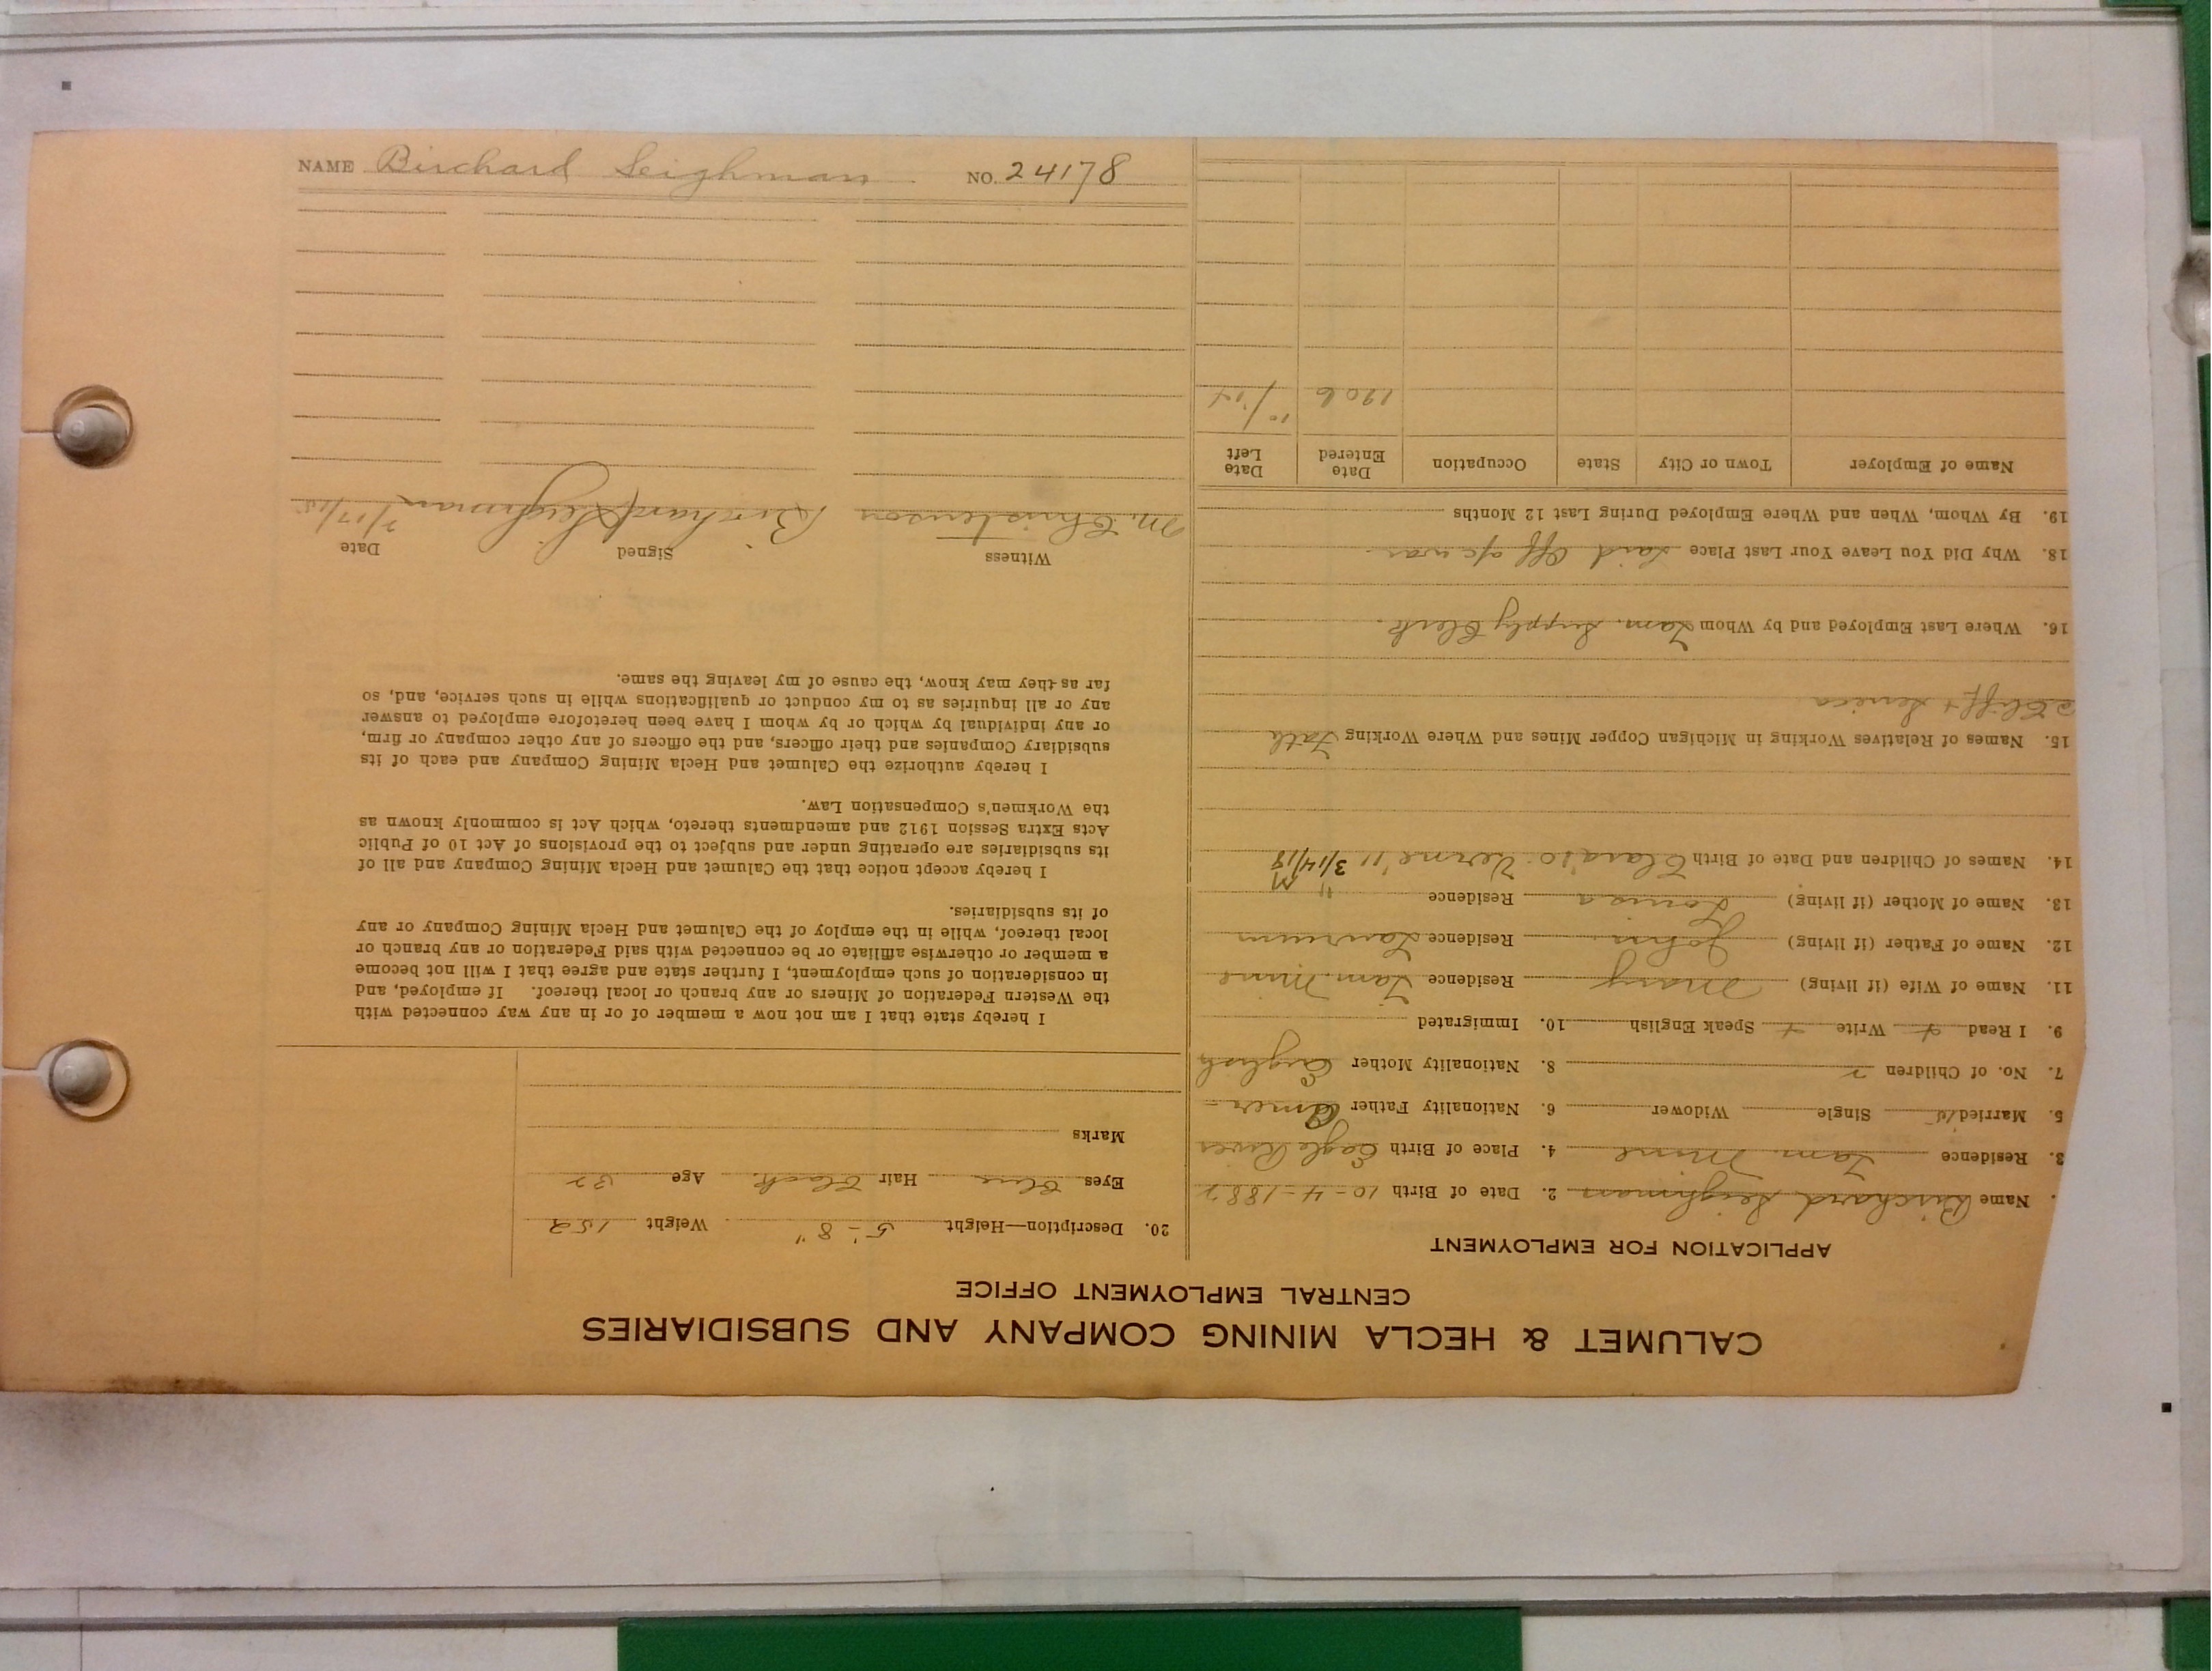 NAME Birchard Seighman NO. 24178
CALUMET & HECLA MINING COMPANY AND SUBSIDIARIES
CENTRAL EMPLOYMENT OFFICE
APPLICATION FOR EMPLOYMENT
. Name Birchard Seighman 2. Date of Birth 10-4-1882
3. Residence Tam. Mine 4. Place of Birth Eagle River
5. Married Single Widower 6. Nationality Father Amer-
7. No. of Children 2 8. Nationality Mother English
9. I Read Write Speak English 10. Immigrated
11. Name of Wife (if living) Mary Residence Tam. Mine
12. Name of Father (if living) John Residence Laurium
13. Name of Mother (if living) Louisa Residence "
14. Names of Children and Date of Birth '10 Verne '11 3/14/18
15. Names of Relatives Working in Michigan Copper Mines and Where Working Fath
Cliff + Seneca
16. Where Last Employed and by Whom Tam. Supply Clerk.
18. Why Did You Leave Your Last Place Laid Off a/c war.
19. By Whom, When and Where Employed During Last 12 Months
Name of Employer Town or City State Occupation Date Entered Date Left
1906 10/14
20. Description—Height 5'-8" Weight 152
Eyes Blue Hair Black Age 32
Marks
I hereby state that I am not now a member of or in any way connected with
the Western Federation of Miners or any branch or local thereof. If employed, and
in consideration of such employment, I further state and agree that I will not become
a member or otherwise affiliate or be connected with said Federation or any branch or
local thereof, while in the employ of the Calumet and Hecla Mining Company or any
of its subsidiaries.
I hereby accept notice that the Calumet and Hecla Mining Company and all of
its subsidiaries are operating under and subject to the provisions of Act 10 of Public
Acts Extra Session 1912 and amendments thereto, which Act is commonly known as
the Workmen's Compensation Law.
I hereby authorize the Calumet and Hecla Mining Company and each of its
subsidiary Companies and their officers, and the officers of any other company or firm,
or any individual by which or by whom I have been heretofore employed to answer
any or all inquiries as to my conduct or qualifications while in such service, and, so
far as they may know, the cause of my leaving the same.
Witness Signed Date
M. Christenson Birchard Seighman 2/17/15